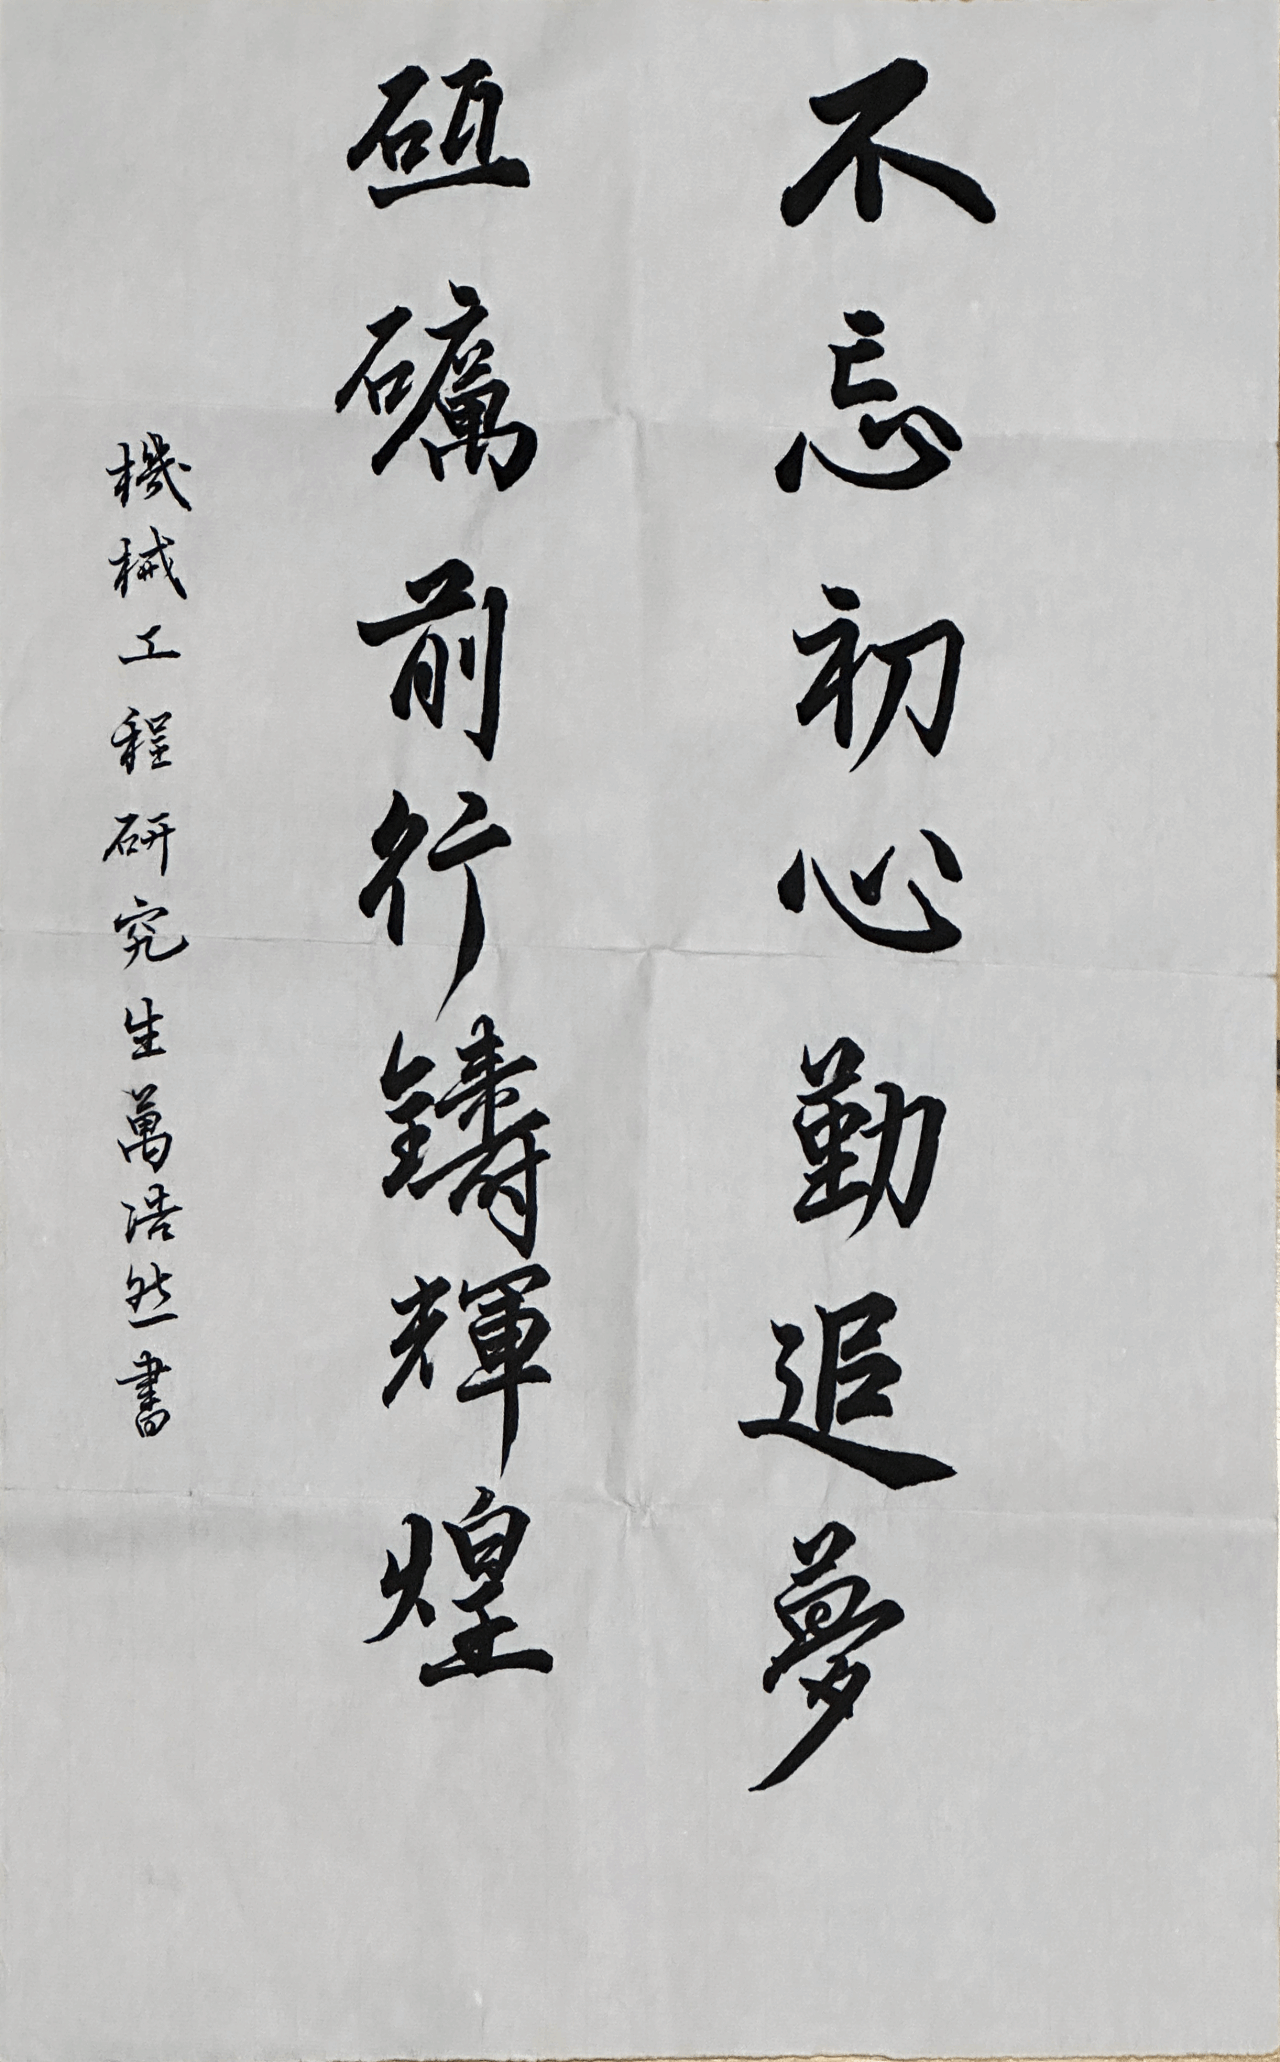 不忘初心勤追夢
砥礪前行鑄輝煌
機械工程研究生萬浩然書